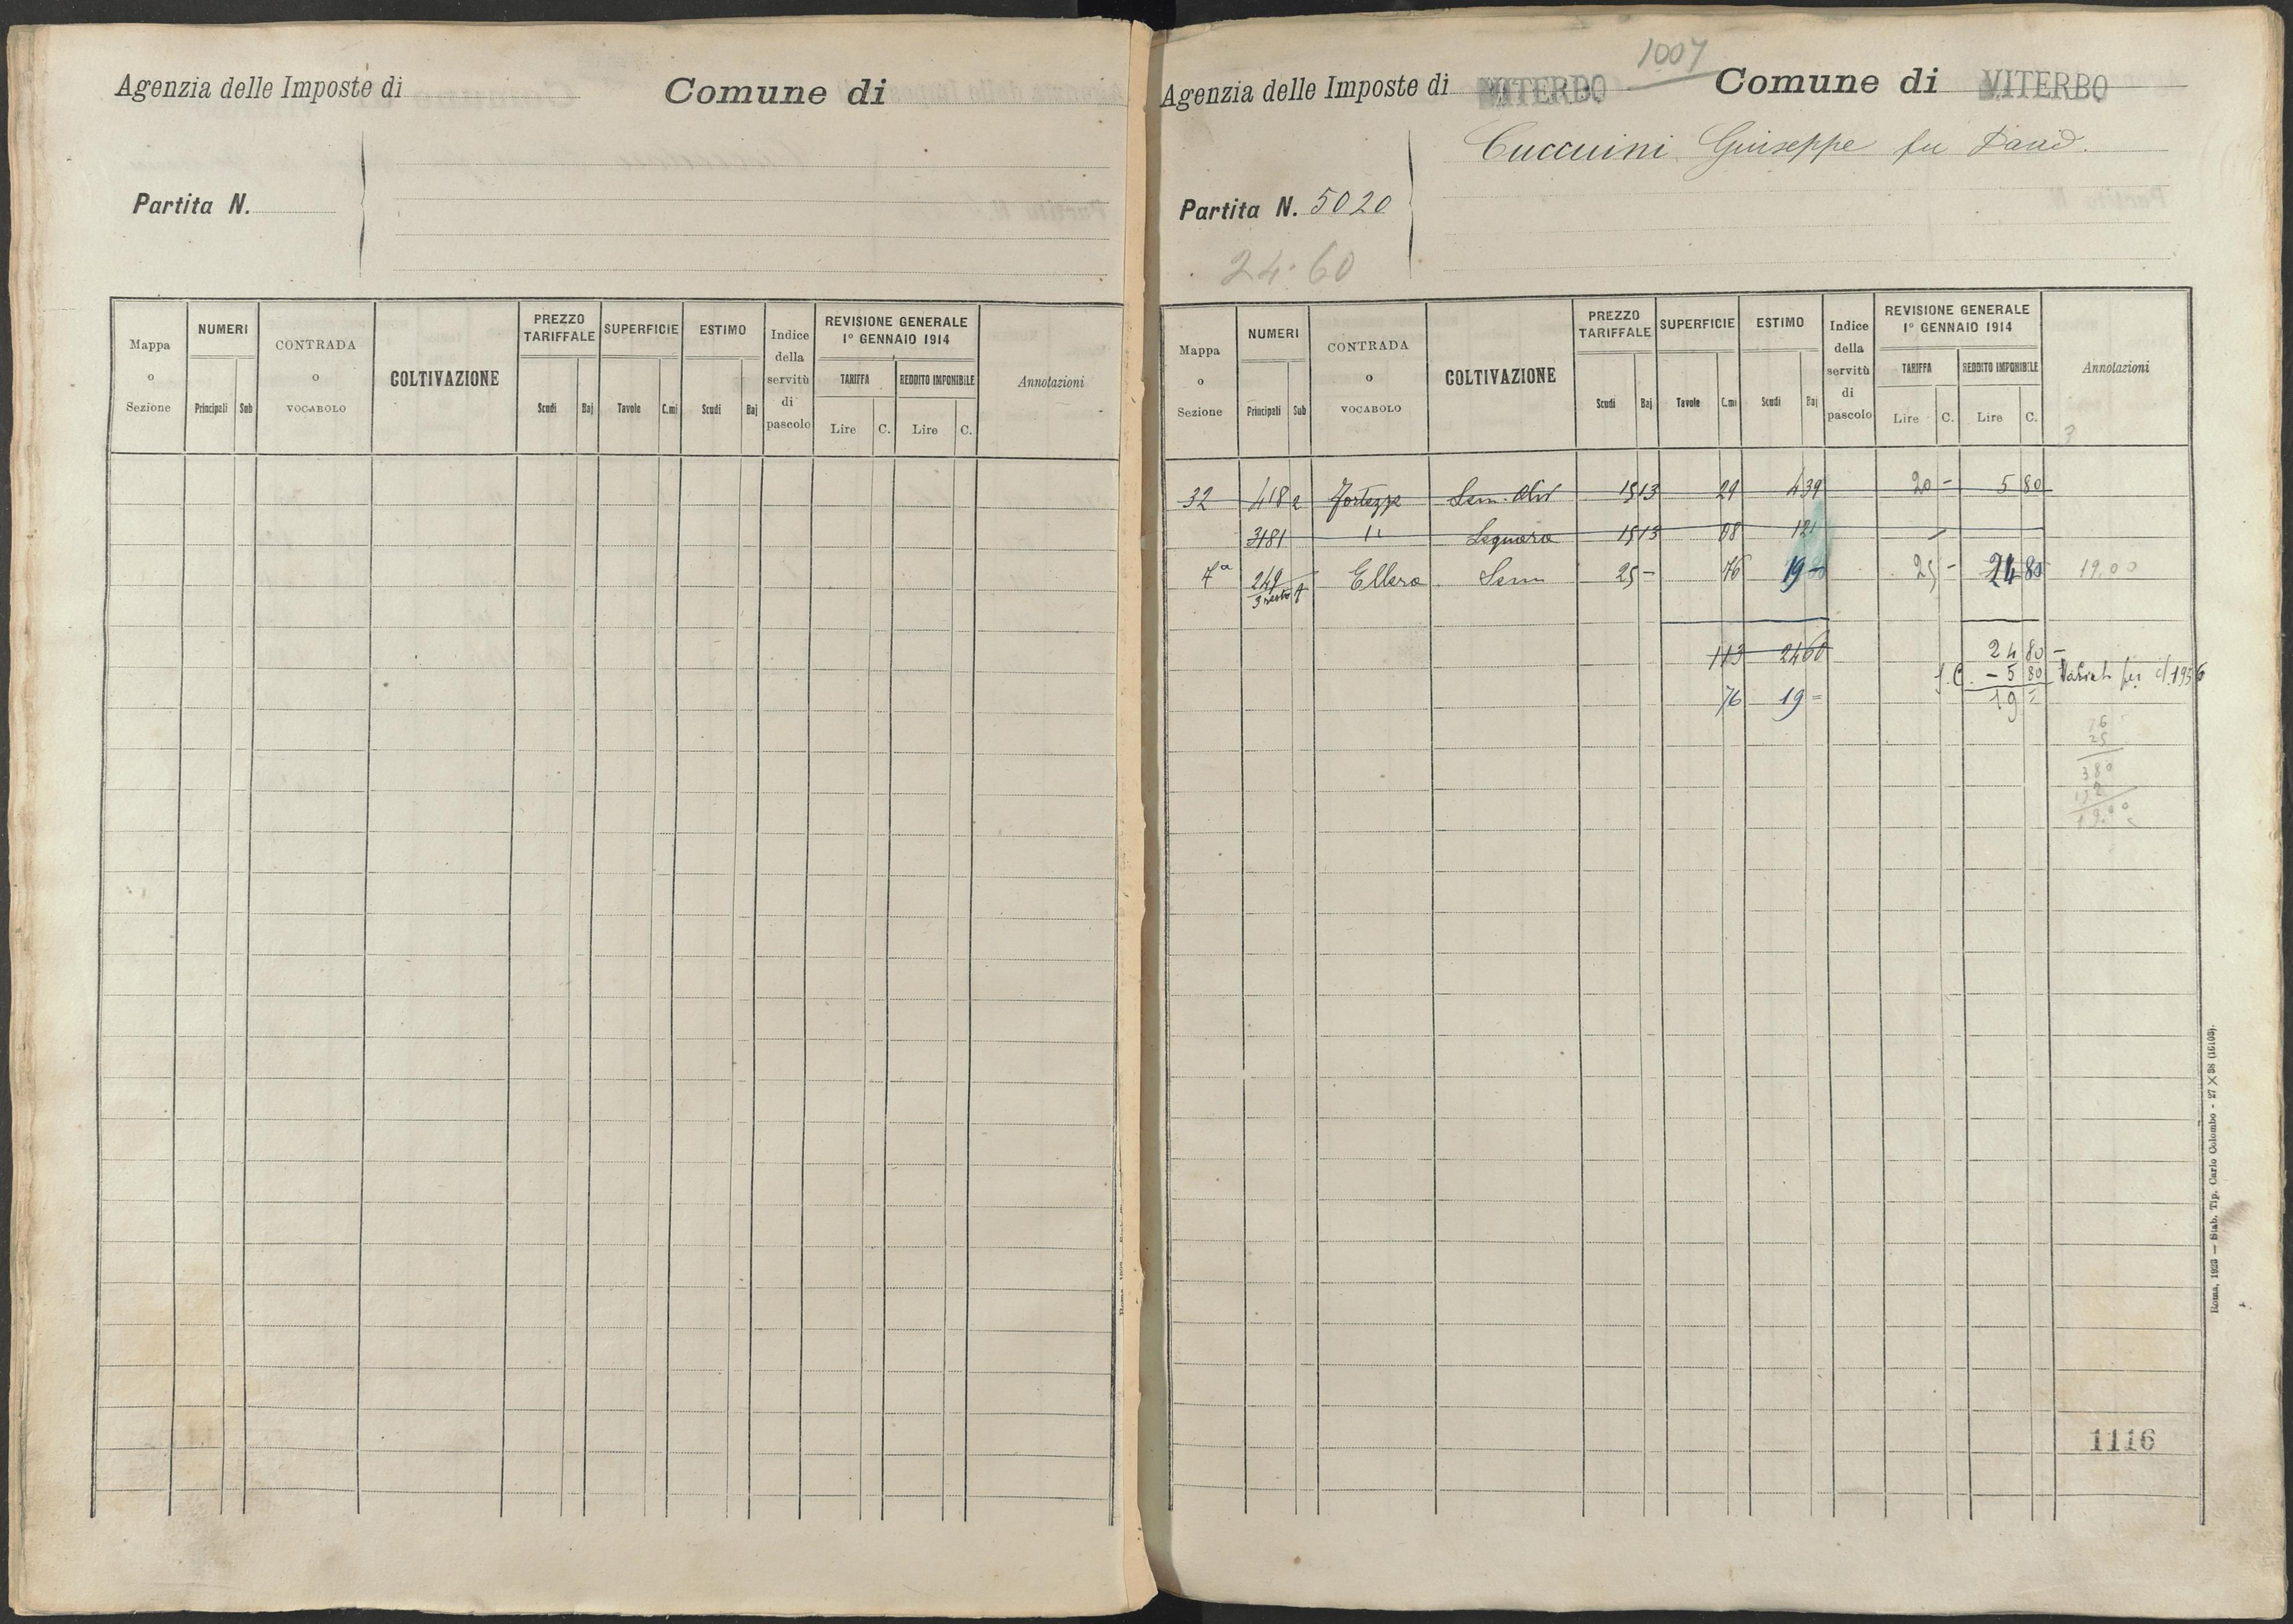 Agenzia delle Imposte di Comune di
Partita N.
Mappa o Sezione NUMERI Principali Sub CONTRADA o VOCABOLO COLTIVAZIONE PREZZO TARIFFALE Scudi Baj SUPERFICIE Tavole C.mi ESTIMO Scudi Baj Indice della servitù di pascolo REVISIONE GENERALE 1° GENNAIO 1914 TARIFFA Lire C. REDDITO IMPONIBILE Lire C. Annotazioni
1007
Agenzia delle Imposte di VITERBO Comune di VITERBO
Cuccuini Giuseppe fu David.
Partita N. 5020
24.60
Mappa o Sezione NUMERI Principali Sub CONTRADA o VOCABOLO COLTIVAZIONE PREZZO TARIFFALE Scudi Baj SUPERFICIE Tavole C.mi ESTIMO Scudi Baj Indice della servitù di pascolo REVISIONE GENERALE 1° GENNAIO 1914 TARIFFA Lire C. REDDITO IMPONIBILE Lire C. Annotazioni
3
32 418 2 Fortezze Sem. Oliv 15 13 29 4 39 20 - 5 80
3181 " 15 13 08 1 21
7a 249/3 resto Ellera Sem 25 - 76 19 - 25 - 80 19.00
113 24 60 24 80 -
- 5 80 Variat per il 1936
76 19 = 19 =
76
25
380
152
19.00
1116
Roma, 1923 — Stab. Tip. Carlo Colombo - 27 X 38 (10103).